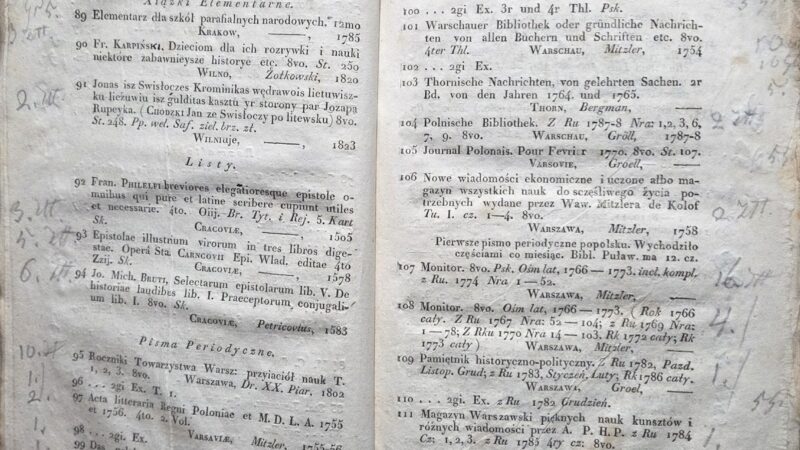 Książki Elementarne.
89 Elementarz dla szkól parafialnych narodowych. 12mo
Krakow, ——, 1785
90 Fr. Karpiński. Dzieciom dla ich rozrywki i nauki
niektóre zabawnieysze historye etc. 8vo. St. 230
Wilno, Zołkowski, 1820
91 Jonas isz Swisłoczes Krominikas wędrawois lictuwiszkaj
liezuwiu isz gulditas kasztu yr storony par Jozapa
Rupeyka. (Chodzki Jan ze Swisłoczy po litewsku) 8vo.
St. 248. Pp. wel. Saf. ziel. brz. zł.
Wilniuje, ——, 1823
Listy.
92 Fran. Philelfi breviores elegatioresque epistole o-
mnibus qui pure et latine scribere cupiunt utiles
et necessarie. 4to. Oiij. Br. Tyt. i Rej. 5. Kart
Sk. Cracoviæ, ——, 1505
93 Epistolae illustrium virorum in tres libros dige-
stae. Opera Sta Carncovii Epi. Wlad. editae 4to
Zzij. Sk. Cracoviæ, ——, 1578
94 Jo. Mich. Bruti, Selectarum epistolarum lib. V. De
historiae laudibus lib. I. Praeceptorum conjugali-
um lib. I. 8vo. Sk.
Cracoviæ, Petricovius, 1583
Pisma Periodyczne.
95 Roczniki Towarzystwa Warsz: przyiaciół nauk T.
1, 2, 3. 8vo. Warszawa, Dr. XX. Piar. 1802
96 . . . 2gi Ex. T. 1.
97 Acta litteraria Regni Poloniae et M. D. L. A. 1755
et 1756. 4to. 2. Vol.
Varsaviæ, Mitzler, 1755-56
98 . . . 2gi Ex.
99 Das
100 . . . 2gi Ex. 3r und 4r Thl. Psk.
101 Warschauer Bibliothek oder gründliche Nachrich-
ten von allen Büchern und Schriften etc. 8vo.
4ter Thl. Warschau, Mitzler, 1754
102 . . . 2gi Ex.
103 Thornische Nachrichten, von gelehrten Sachen. 2r
Bd. von den Jahren 1764. und 1765.
Thorn, Bergman, ——
104 Polnische Bibliothek. Z Ru 1787-8 Nra: 1, 2, 3, 6,
7, 9. 8vo. Warschau, Gröll, 1787-8
105 Journal Polonais. Pour Fevrier 1770. 8vo. St. 107.
Varsovie, Groell, ——
106 Nowe wiadomości ekonomiczne i uczone albo ma-
gazyn wszystkich nauk do szczęśliwego życia po-
trzebnych wydane przez Waw. Mitzlera de Kolof
Tu. I. cz. 1—4. 8vo.
Warszawa, Mitzler, 1758
Pierwsze pismo periodyczne popolsku. Wychodziło
częściami co miesiąc. Bibl. Puław. ma 12. cz.
107 Monitor. 8vo. Psk. Ośm lat, 1766—1773. incl. kompl.
z Ru. 1774 Nra 1—52.
Warszawa, Mitzler, ——
108 Monitor. 8vo. Ośm lat, 1766—1773. (Rok 1766
cały. Z Ru 1767 Nra: 52—104; z Ru 1769 Nra:
1—78; Z Rku 1770 Nra 14—103. Rk 1772 cały; Rk
1773 cały) Warszawa, Mitzler, ——
109 Pamiętnik historyczno-polityczny. Z Ru 1782, Pazd.
Listop. Grud; z Ru 1783, Styczeń, Luty; Rk 1786 cały.
Warszawa, Groel, ——
110 . . . 2gi Ex. z Ru 1782 Grudzień.
111 Magazyn Warszawski pięknych nauk kunsztów i
różnych wiadomości przez A. P. H. P. z Ru 1784
Cz: 1, 2, 3. z Ru 1785 4ry cz: 8vo.